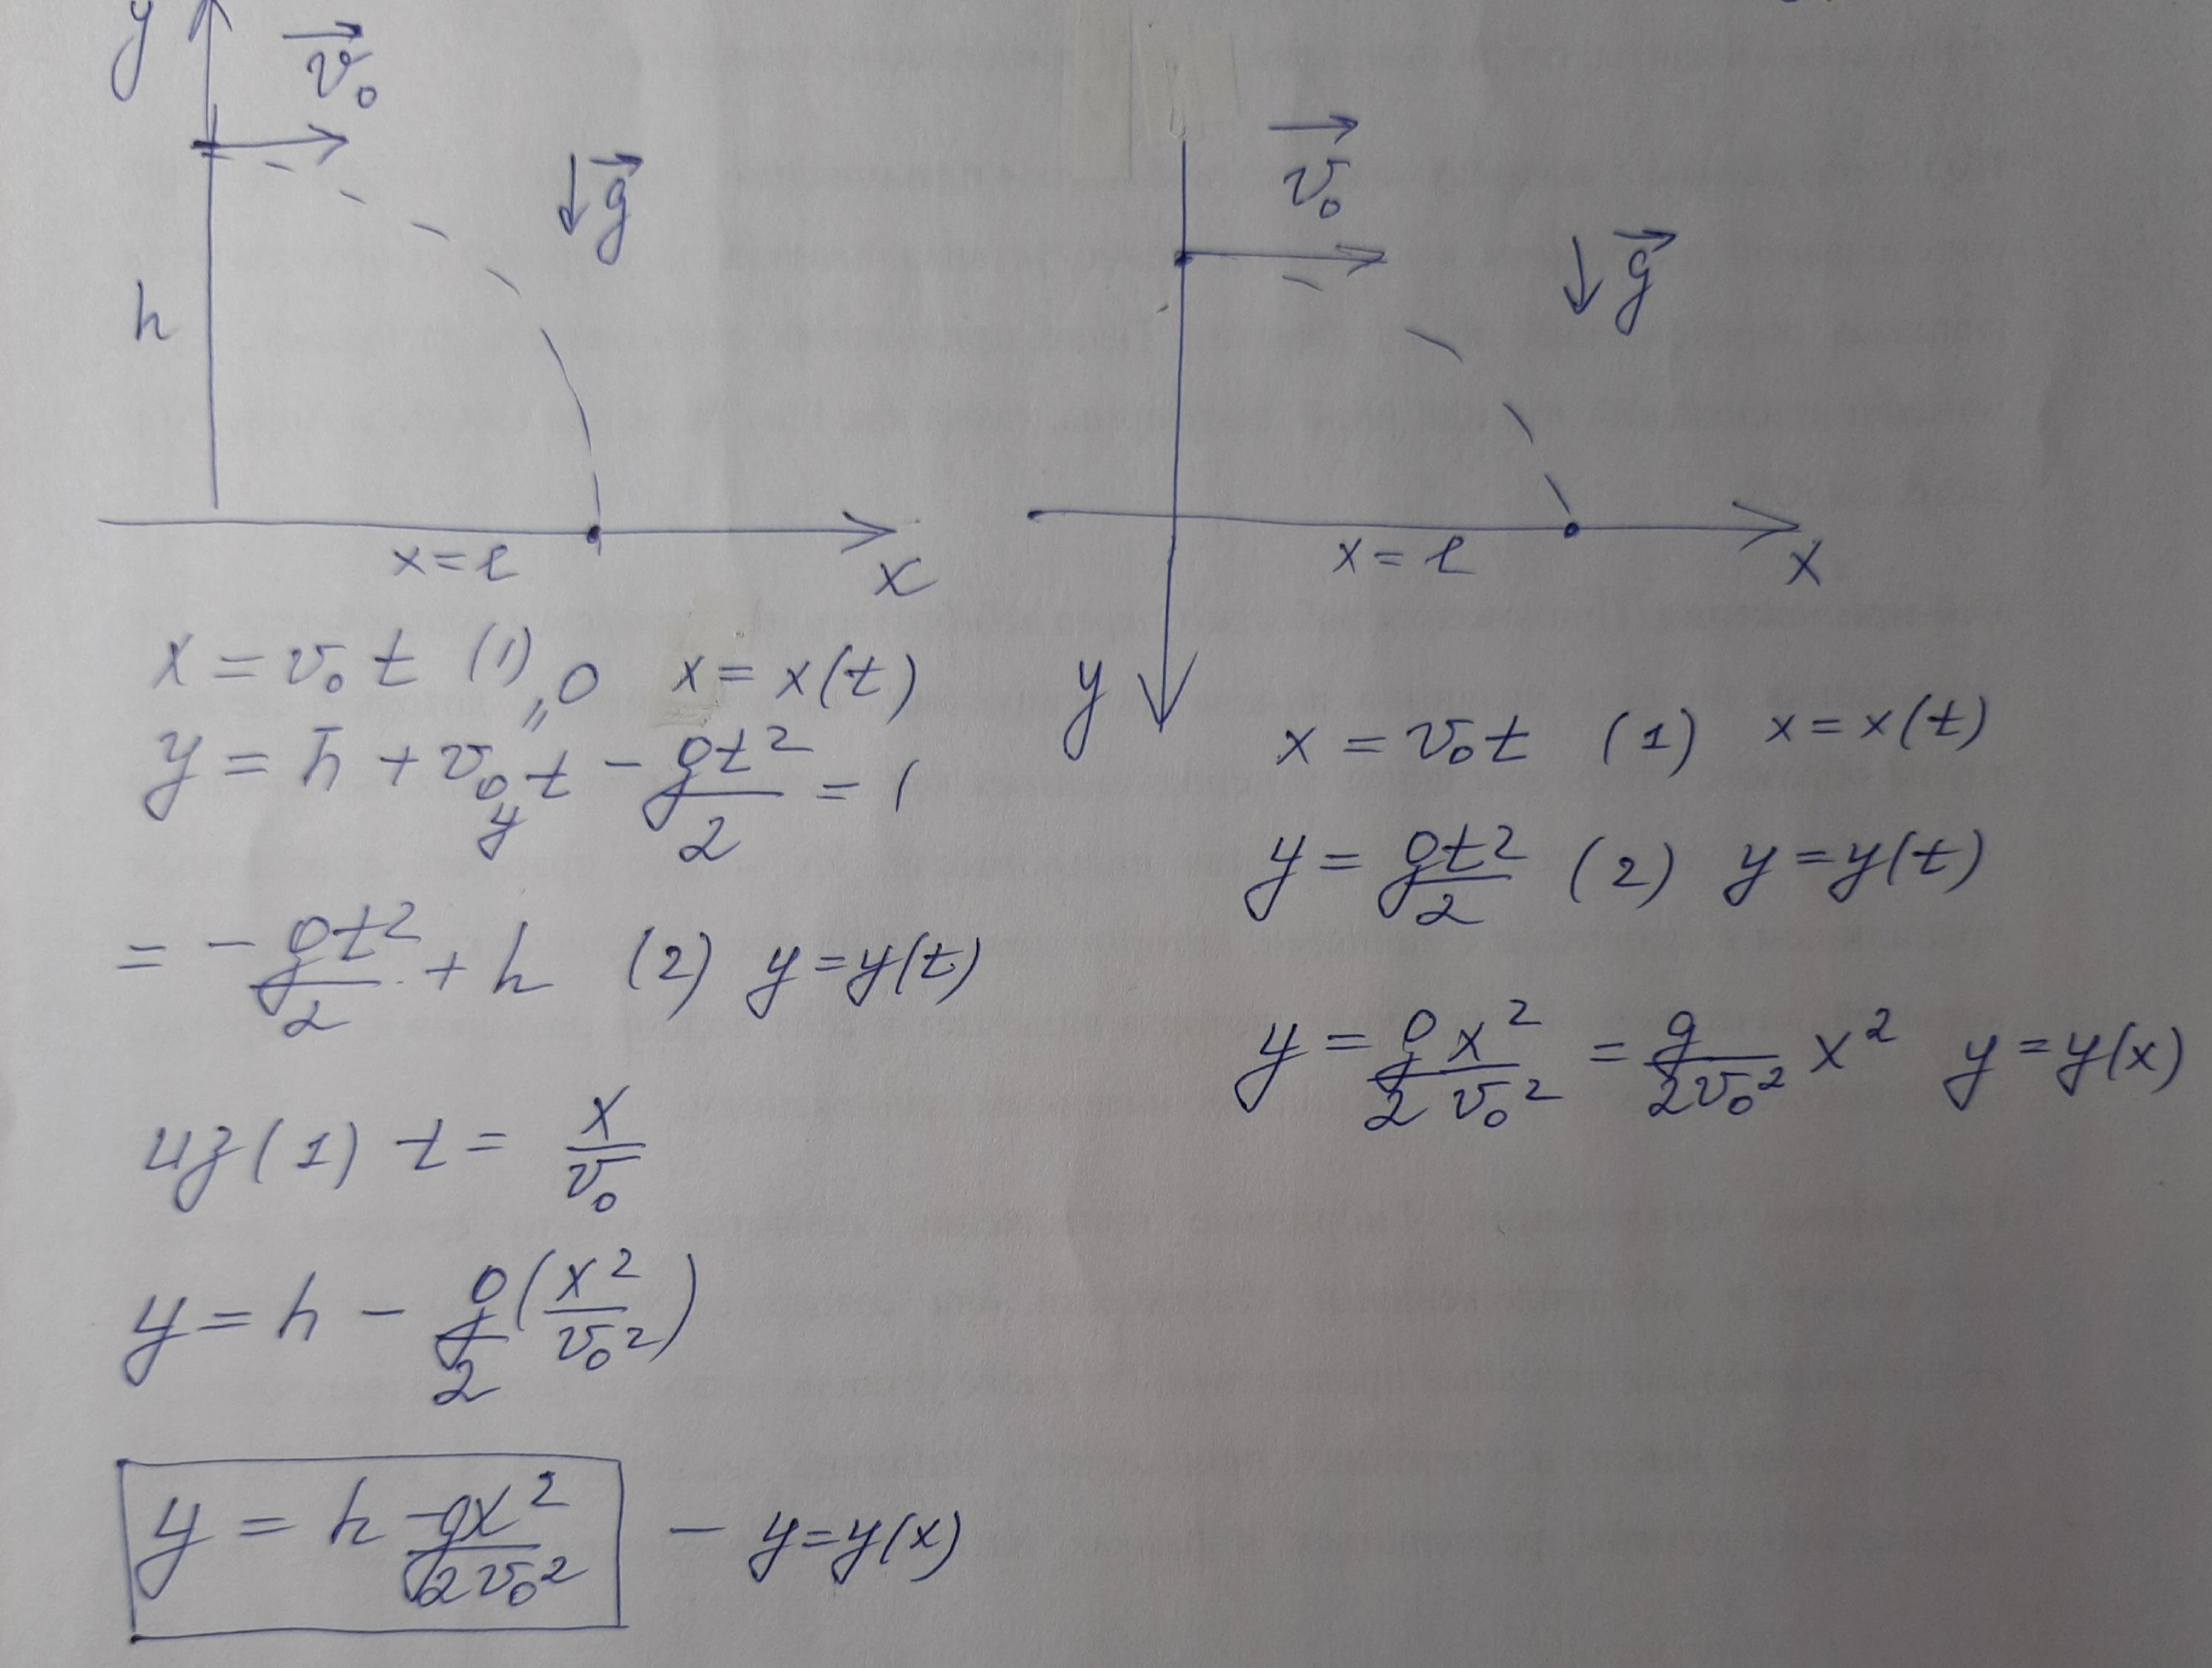 y
v₀
g
h
x = l
x
x = v₀ t (1) x = x(t)
0
"
y = h + v₀y t - gt²/2 = (
= - gt²/2 + h (2) y = y(t)
из (1) t = x/v₀
y = h - g/2 (x²/v₀²)
y = h - gx²/2v₀² - y = y(x)
v₀
g
x = l
x
y
x = v₀t (1) x = x(t)
y = gt²/2 (2) y = y(t)
y = g/2 x²/v₀² = g/2v₀² x² y = y(x)